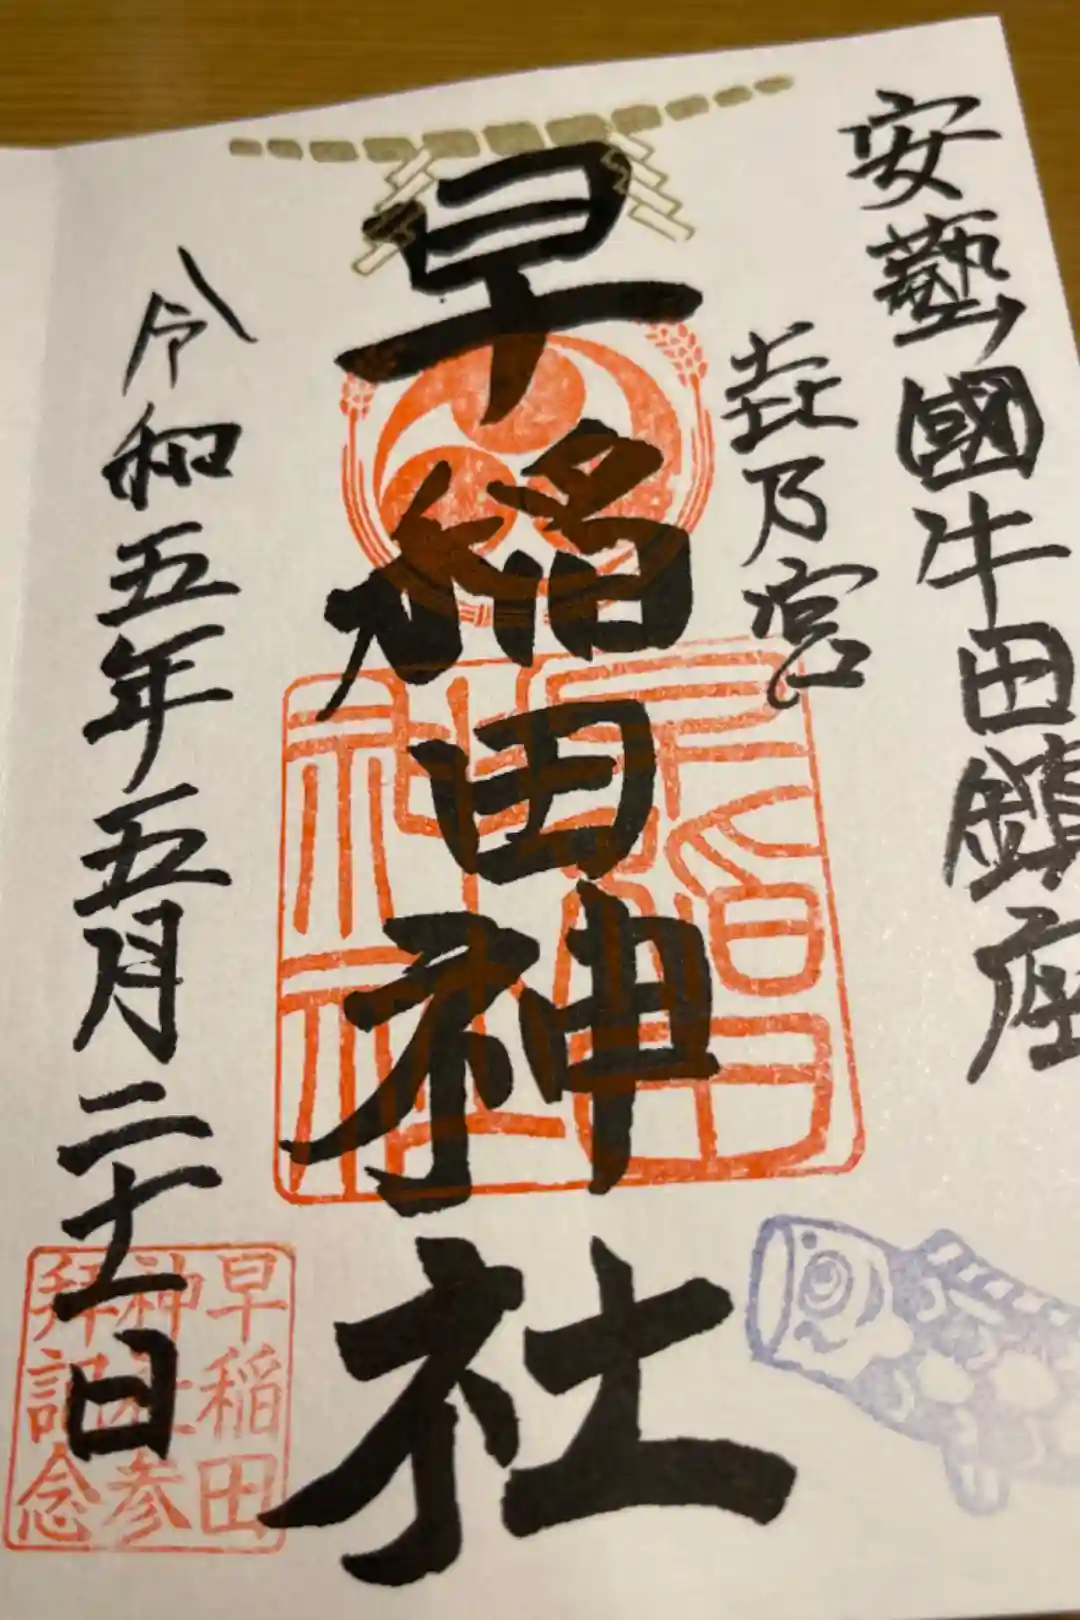 安藝國牛田鎮座
㐂乃宮
早稲田神社
令和五年五月二十一日
早稲田
神社参
拝記念